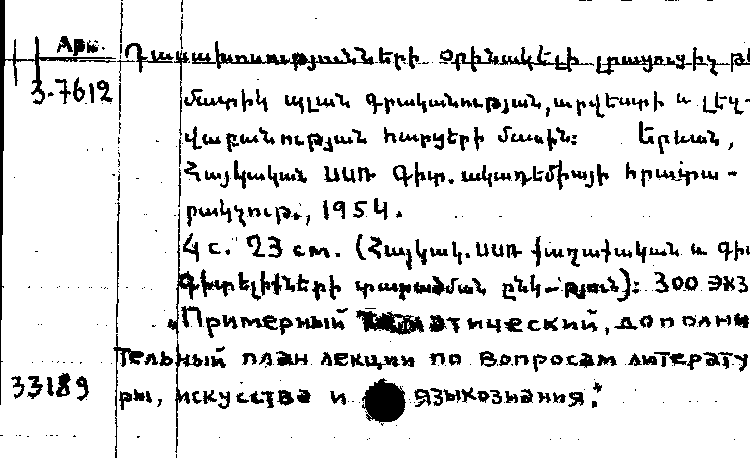 Арм.
Դասախոսությունների օրինակելի լրացուցիչ թե
3-7612
մատիկ պլան գրականության, արվեստի և լեզ-
վաբանության հարցերի մասին։ Երևան,
Հայկական ՍՍՌ Գիտ. ակադեմիայի հրատա-
րակչութ., 1954.
4 с. 23 см. (Հայկակ. ՍՍՌ քաղաքական և գի
գիտելիքների տարածման ընկ-թյուն)։ 300 экз
„Примерный тематический, дополни
тельный план лекции по вопросам литерату
33189
ры, искусства и языкознания."